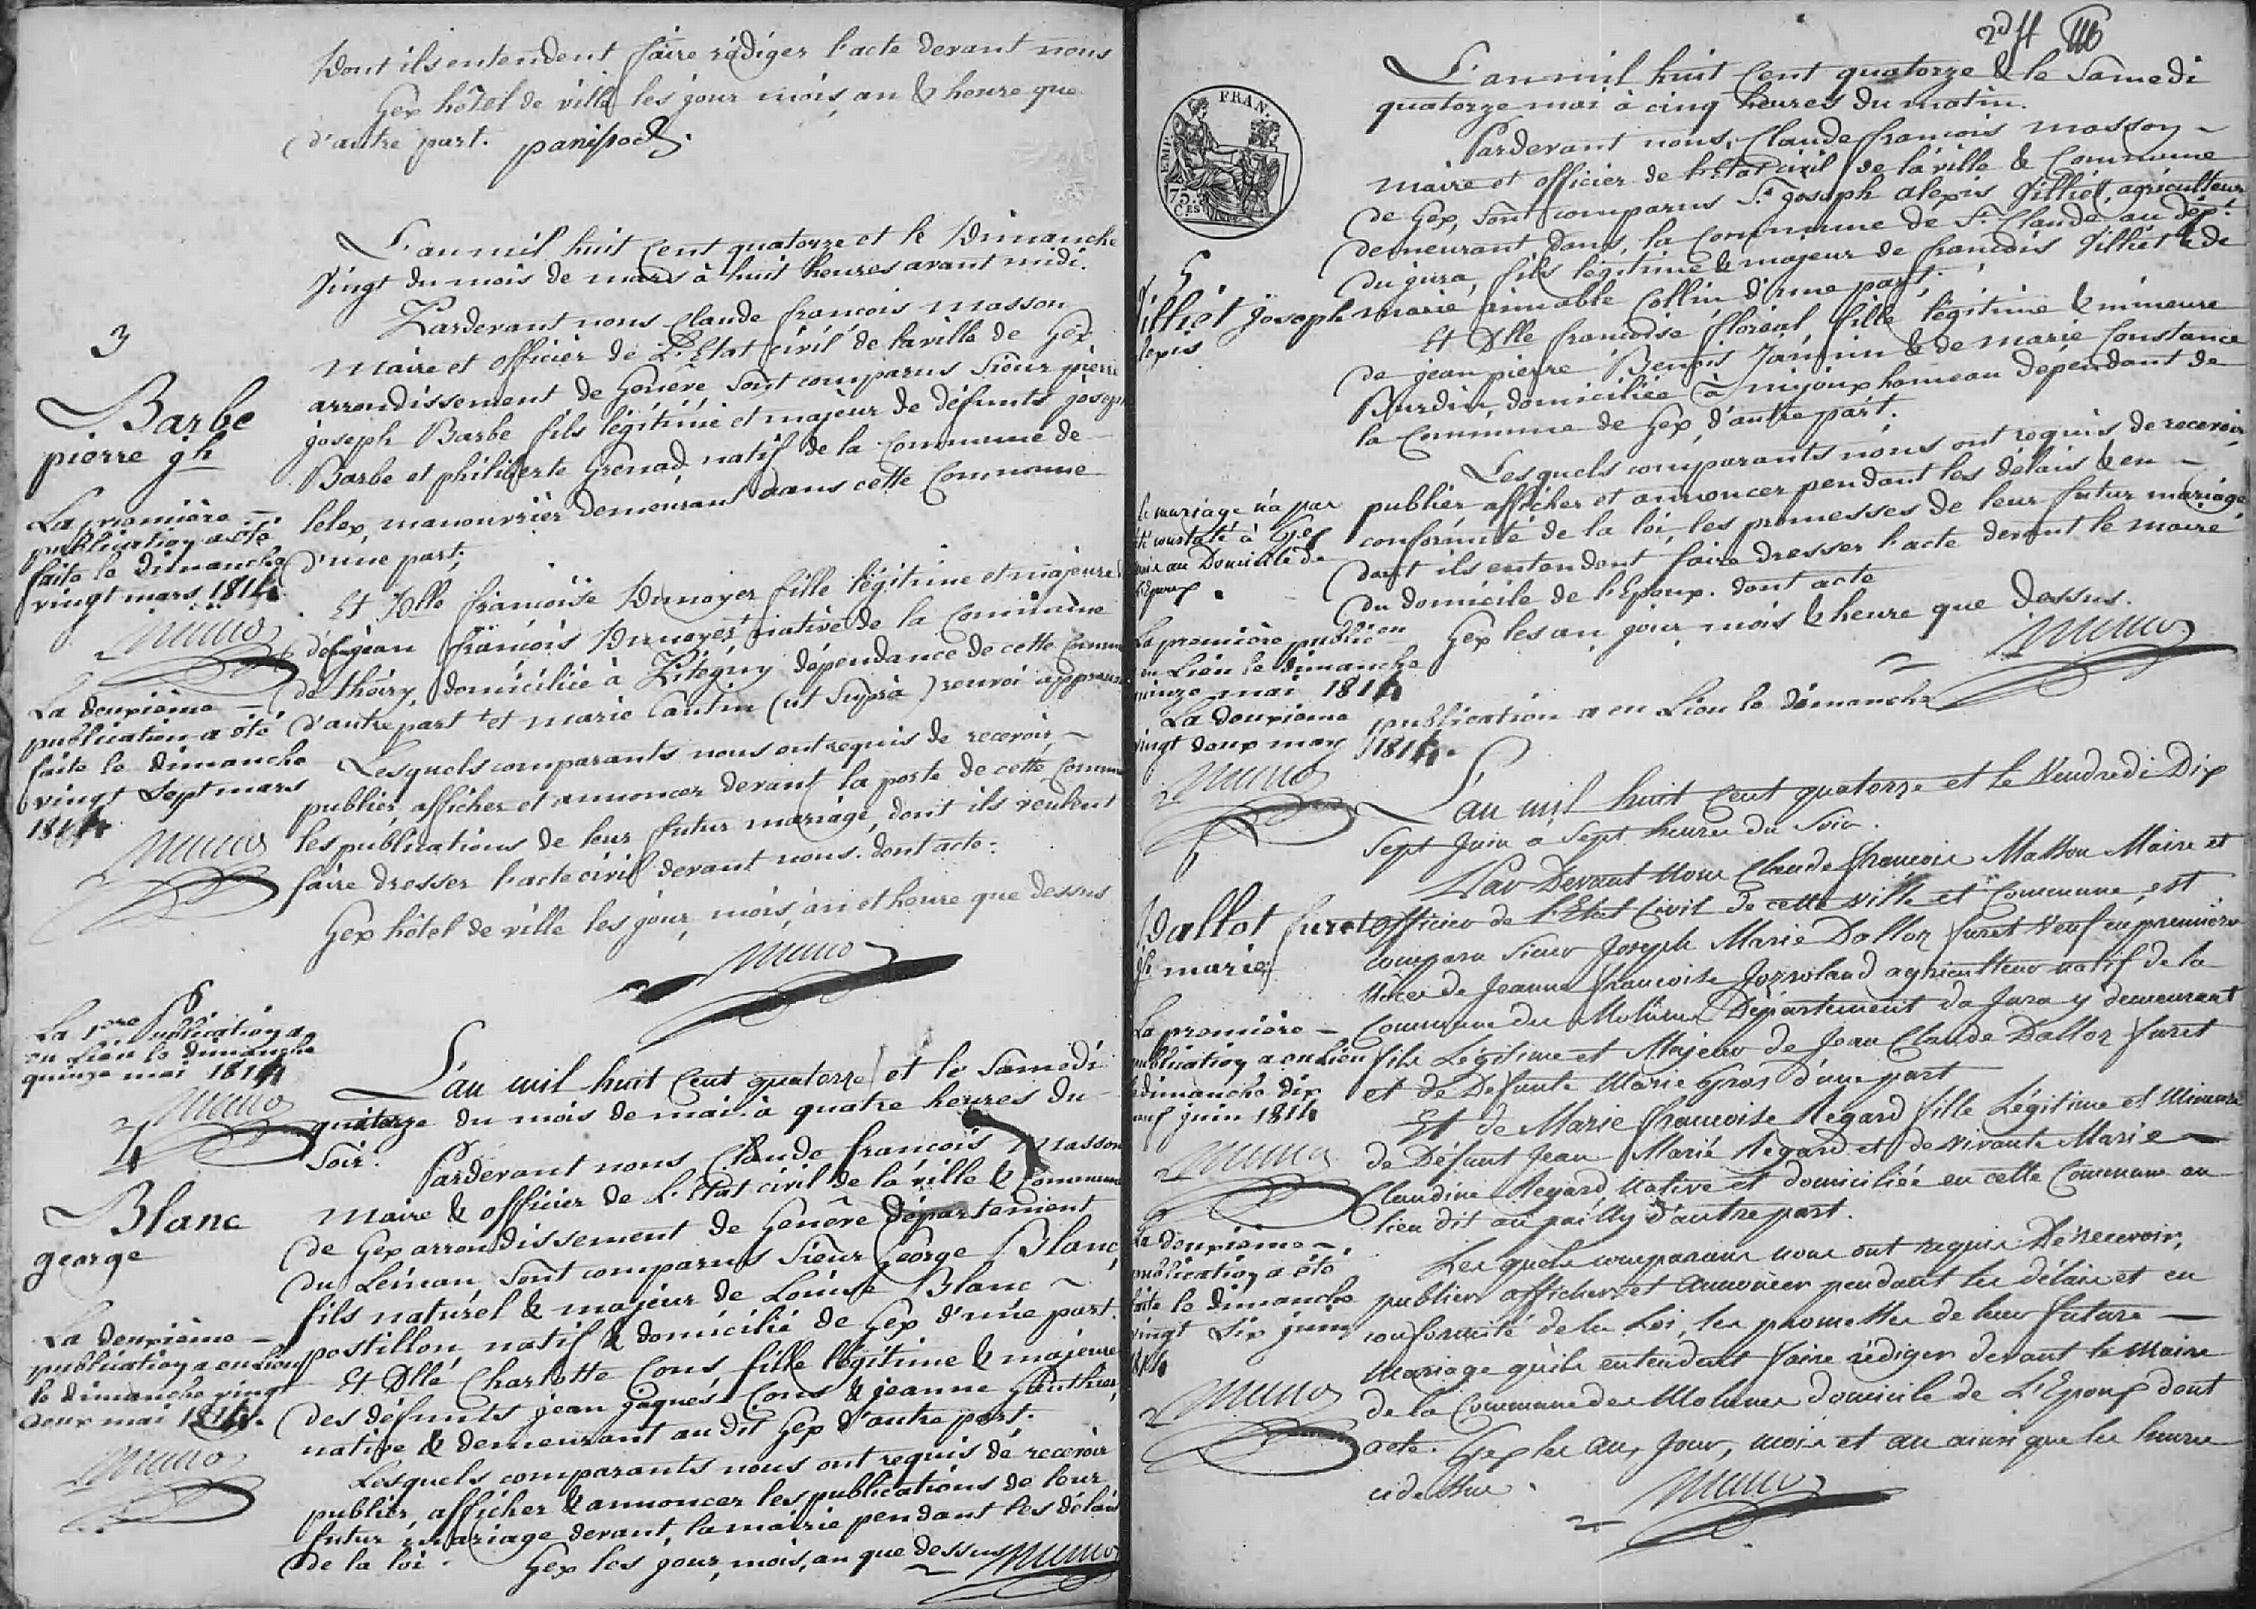 Dont ils entendent faire rédiger l'acte devant nous
Gex hôtel de ville les jour mois, an & heure que
d'autre part.
L'an mil huit Cent quatorze et le Dimanche
Vingt du mois de mars à huit heures avant midi.
Pardevant nous Claude françois Masson
Maire et officier de L'Etat civil de la ville de Gex
arrondissement de Genève sont comparus Sieur pierre
joseph Barbe fils légitime et majeur de défunts joseph
Barbe et philiberte Grenad natif de la Commune de
lelex, manouvrier demeurant dans cette Commune
d'une part;
Et Dlle françoise Dumoyer fille légitime et majeure
de jean françois Dumoyer native de la Commune
de thoiry, domiciliée à Pitegny dépendance de cette Commune
d'autre part + et marie Cantin (ut Suprà) renvoi approuvé
Lesquels comparants nous ont requis de recevoir,
publier, afficher et annoncer devant la porte de cette Commune
les publications de leur futur mariage, dont ils veulent
faire dresser l'acte civil devant nous. dont acte.
Gex hôtel de ville les jour, mois, an et heure que dessus
3
Barbe
pierre jh
La première
publication a été
faite le dimanche
vingt mars 1814.
La deuxième
publication a été
faite le dimanche
vingt Sept mars
1814.
La 1ere publication a
eu Lieu le dimanche
quinze mai 1814
L'an mil huit Cent quatorze et le Samedi
quatorze du mois de mai à quatre heures du
Soir.
Pardevant nous Claude françois Masson
Maire & officier de L'Etat civil de la ville & Commune
de Gex arrondissement de Genève département
du Léman, sont comparus Sieur George Blanc,
fils naturel & majeur de Louise Blanc
postillon natif & domicilié de Gex d'une part.
Et Dlle Charlotte Cons, fille légitime & majeure
des défunts jean jaques Cons & jeanne Gauthier,
native & demeurant audit Gex d'autre part.
Lesquels comparants nous ont requis de recevoir
publier, afficher & annoncer les publications de leur
futur mariage devant la mairie pendant les délais
de la loi.
Gex les jour, mois, an que dessus
4
Blanc
george
La deuxième
publication a eu Lieu
le dimanche vingt
deux mai 1814.
2d ff
L'an mil huit Cent quatorze & le Samedi
quatorze mai à cinq heures du matin.
Pardevant nous, Claude françois Masson
Maire et officier de L'Etat civil de la ville & Commune
de Gex, sont comparus Sr joseph alexis Villiet, agriculteur
demeurant dans la Commune de St Claude au dépt
du jura, fils légitime & majeur de françois Villiet & de
marie aimable Collin d'une part.
Et Dlle françoise floréal, fille légitime & mineure
de jean pierre Benois Janin & de marie Constance
Burdin, domiciliée à mijoux hameau dépendant de
la Commune de Gex, d'autre part.
Lesquels comparants nous ont requis de recevoir,
publier afficher et annoncer pendant les délais & en
conformité de la loi, les promesses de leur futur mariage
dont ils entendent faire dresser l'acte devant le maire
du domicile de l'Epoux. dont acte
Gex les an, jour, mois & heure que dessus.
FRAN.
EMP.
75.
CES
5
Villiet joseph
alexis
le mariage n'a pas
été constaté à Gex
mais au Domicile de
l'Epoux.
La première publicon
eu Lieu le dimanche
quinze mai 1814
La deuxième publication a eu Lieu le dimanche
vingt deux may 1814.
L'an mil huit Cent quatorze et le Vendredi Dix
Sept Juin à Sept heures du Soir.
Par Devant Nous Claude françois Masson Maire et
Officier de l'Etat Civil de cette Ville et Commune, est
comparu Sieur Joseph Marie Dalloz furet Veuf en première
Noces de Jeanne françoise Joz-roland agriculteur natif de la
Commune des Molunes Département du Jura y demeurant
fils Légitime et Majeur de Jean Claude Dalloz furet
et de Defunte Marie Gros d'une part
Et de Marie françoise Regard fille Légitime et Mineure
de Défunt Jean Marie Regard et de vivante Marie
Claudine Regard Native et domiciliée en cette Commune au
lieu dit au pailly d'autre part.
Lesquels comparans nous ont requis De recevoir,
publier afficher et annoncer pendant les délais et en
conformité de la Loi, les promesses de leur future
Mariage qu'ils entendent faire rédiger devant le Maire
de la Commune des Molunes domicile de L'Epoux dont
acte. Gex les an, jour, mois et an ainsi que les heures
ci dessus.
6
Dallot furet
jh marie
La première
publication a eu Lieu
le dimanche dix
neuf juin 1814
La deuxième
publication a été
faite le dimanche
vingt Six juin
1814